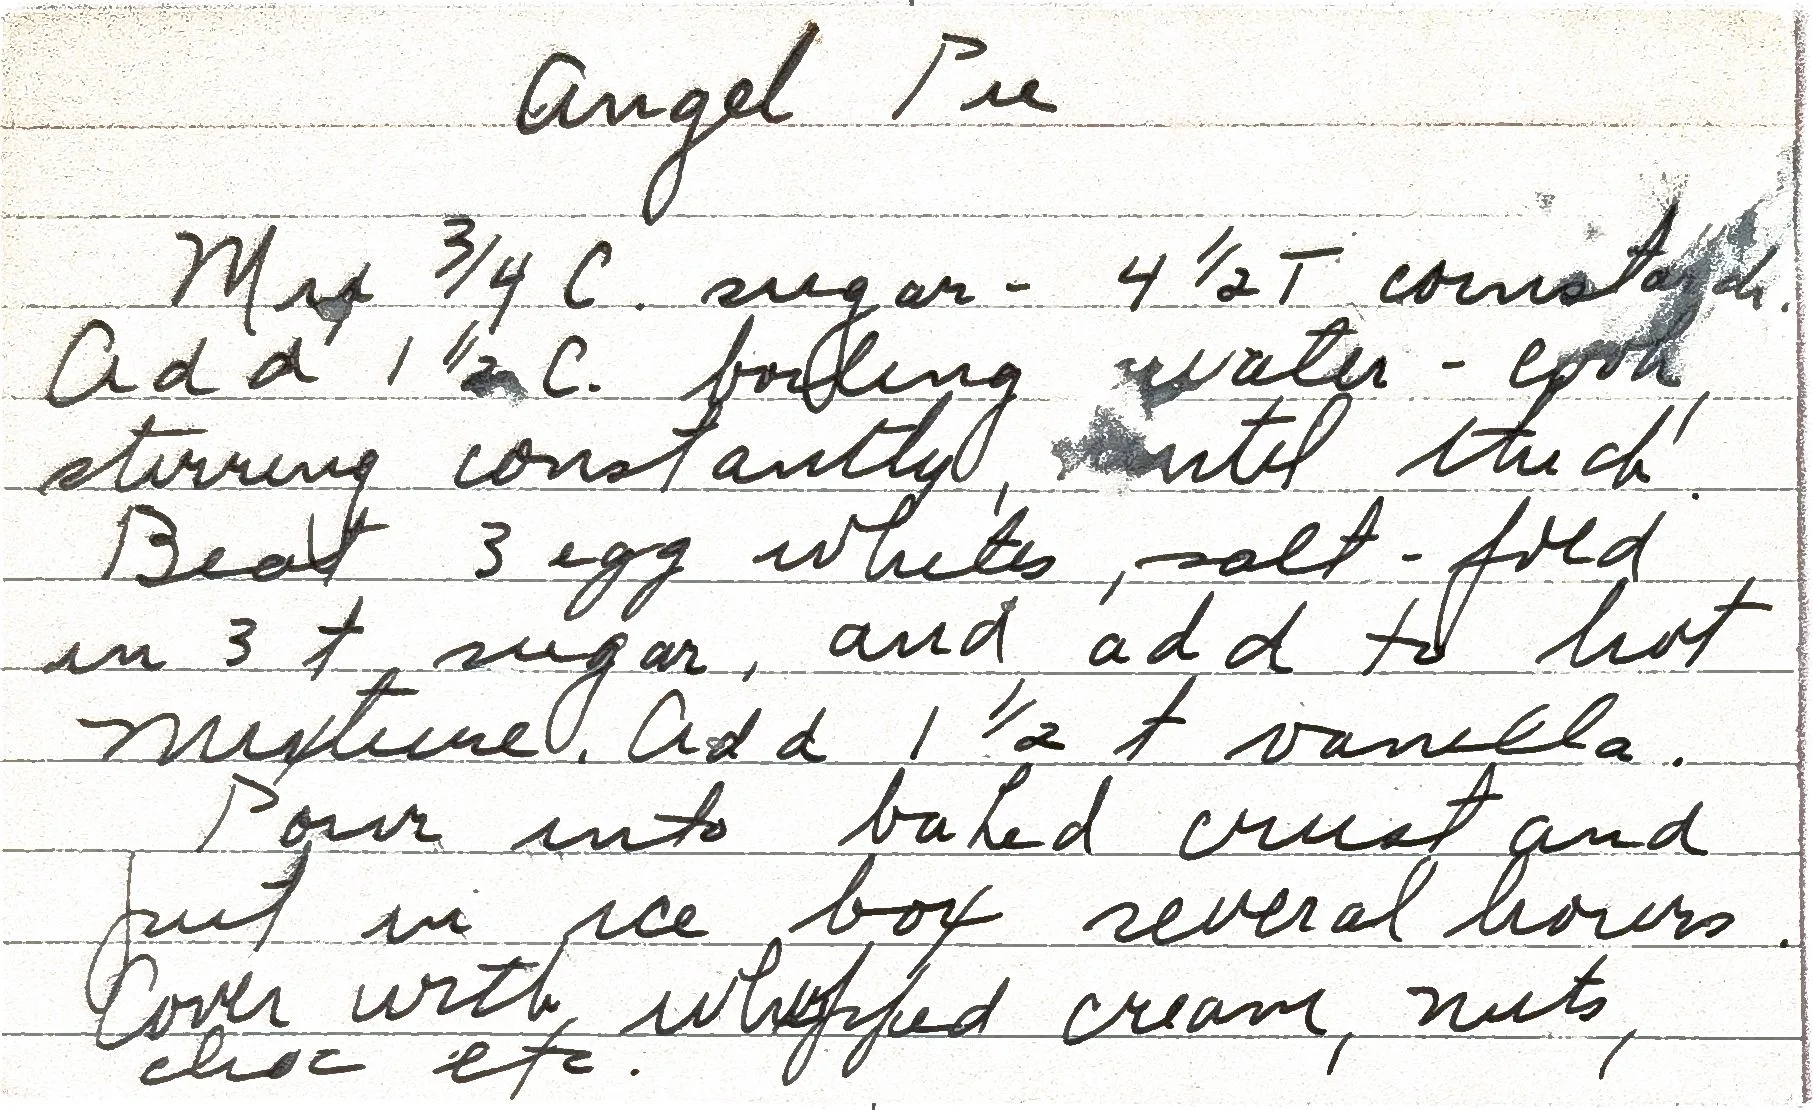 Angel Pie
Mix 3/4 C. sugar - 4 1/2 T cornstarch.
Add 1 1/2 C. boiling water - cook,
stirring constantly, until thick.
Beat 3 egg whites, salt - fold
in 3 t sugar, and add to hot
mixture. Add 1 1/2 t vanilla.
Pour into baked crust and
put in ice box several hours.
Cover with whipped cream, nuts,
choc etc.